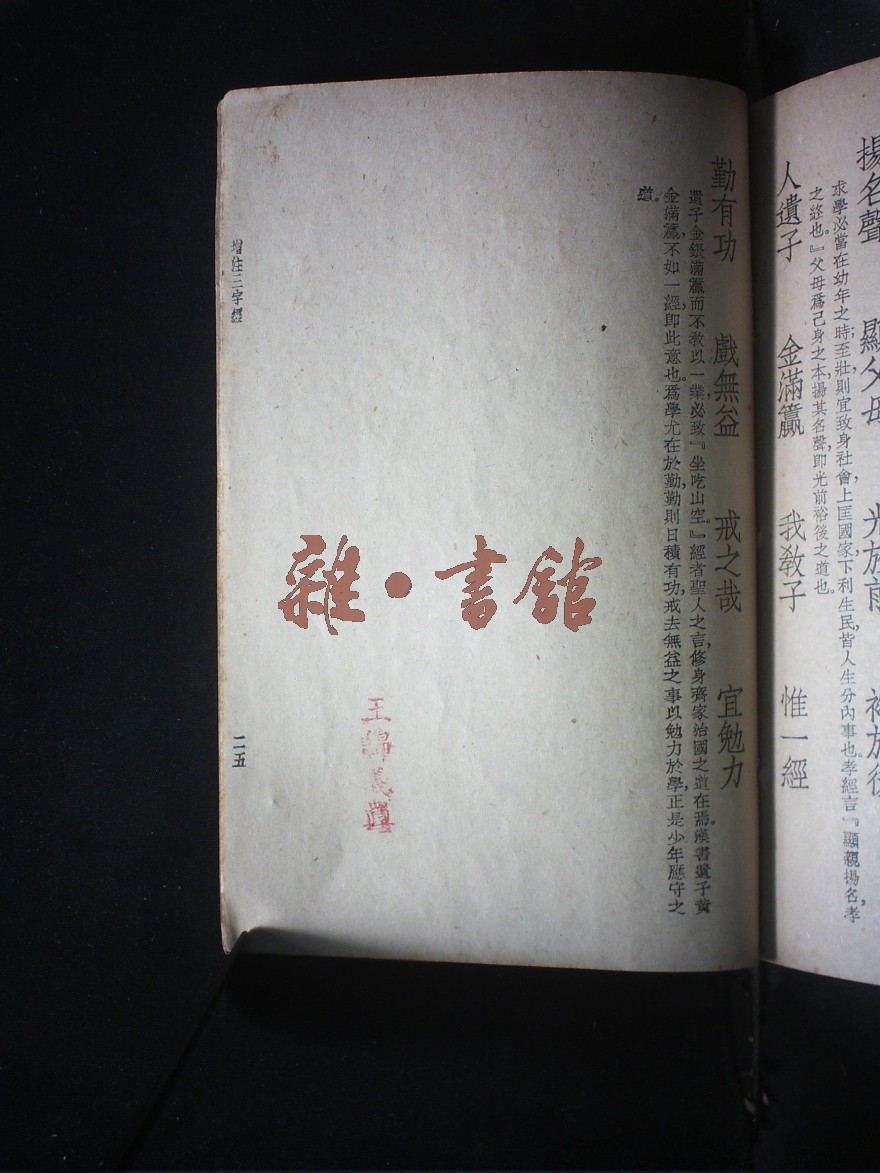 揚名聲　顯父母　光於前　裕於後
求學必當在幼年之時，至壯則宜致身社會，上匡國家，下利生民，皆人生分內事也。孝經言『顯親揚名，孝
之終也。』父母爲己身之本，揚其名聲，即光前裕後之道也。
人遺子　金滿籯　我教子　惟一經
勤有功　戲無益　戒之哉　宜勉力
遺子金銀滿籯，而不教以一業，必致『坐吃山空。』經者聖人之言，修身齊家治國之道在焉。漢書遺子黃
金滿籯，不如一經，即此意也。爲學尤在於勤，勤則日積有功，戒去無益之事，以勉力於學，正是少年應守之
道。
增注三字經
二五
雜·書館
王錦義